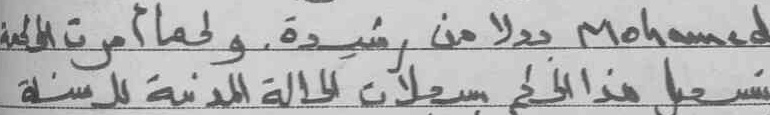 Mohamed بدلا من رشيدة. ولهما أمرت المحكمة
تسجيل هذا الحكم بسجلات الحالة المدنية للسنة